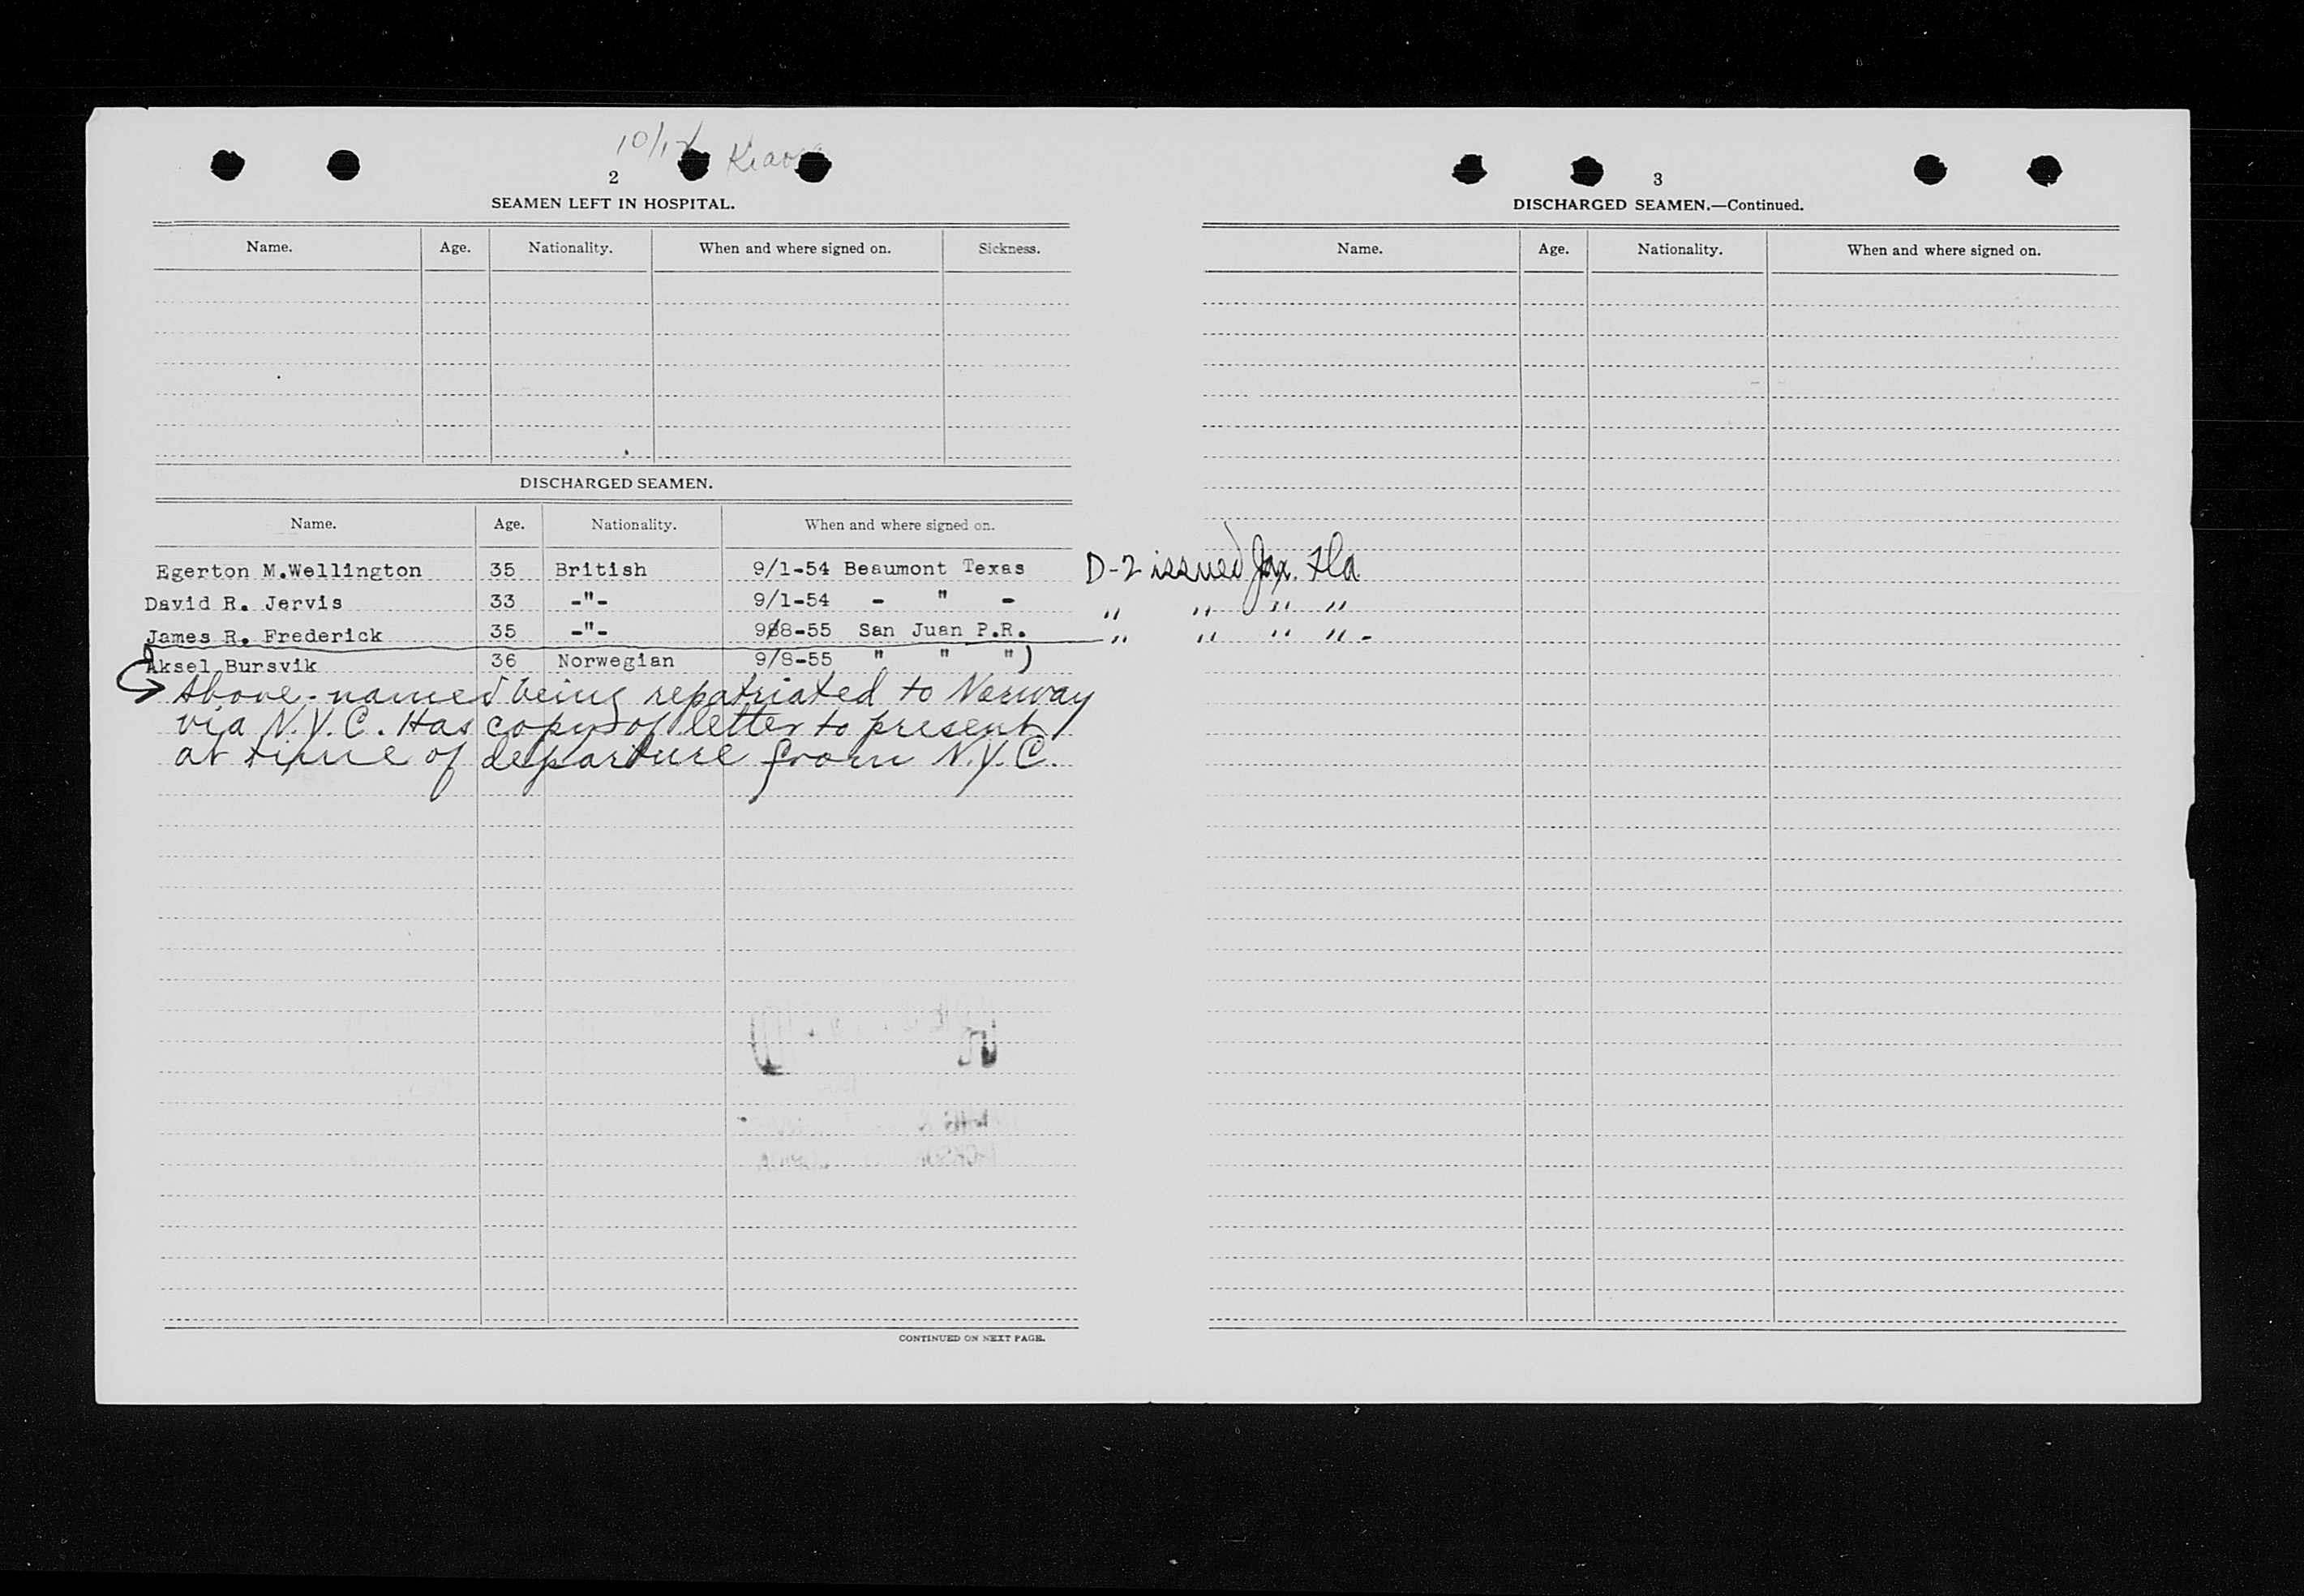 10/12
2
SEAMEN LEFT IN HOSPITAL.
Name. Age. Nationality. When and where signed on. Sickness.
DISCHARGED SEAMEN.
Name. Age. Nationality. When and where signed on.
Egerton M.Wellington 35 British 9/1-54 Beaumont Texas D-2 issued Jax. Fla
David R. Jervis 33 -"- 9/1-54 - " - " " " "
James R. Frederick 35 -"- 9/8-55 San Juan P.R. " " " " -
Aksel Bursvik 36 Norwegian 9/8-55 " " ")
Above-named being repatriated to Norway
via N.Y.C. Has copy of letter to present
at time of departure from N.Y.C.
CONTINUED ON NEXT PAGE.
3
DISCHARGED SEAMEN.—Continued.
Name. Age. Nationality. When and where signed on.